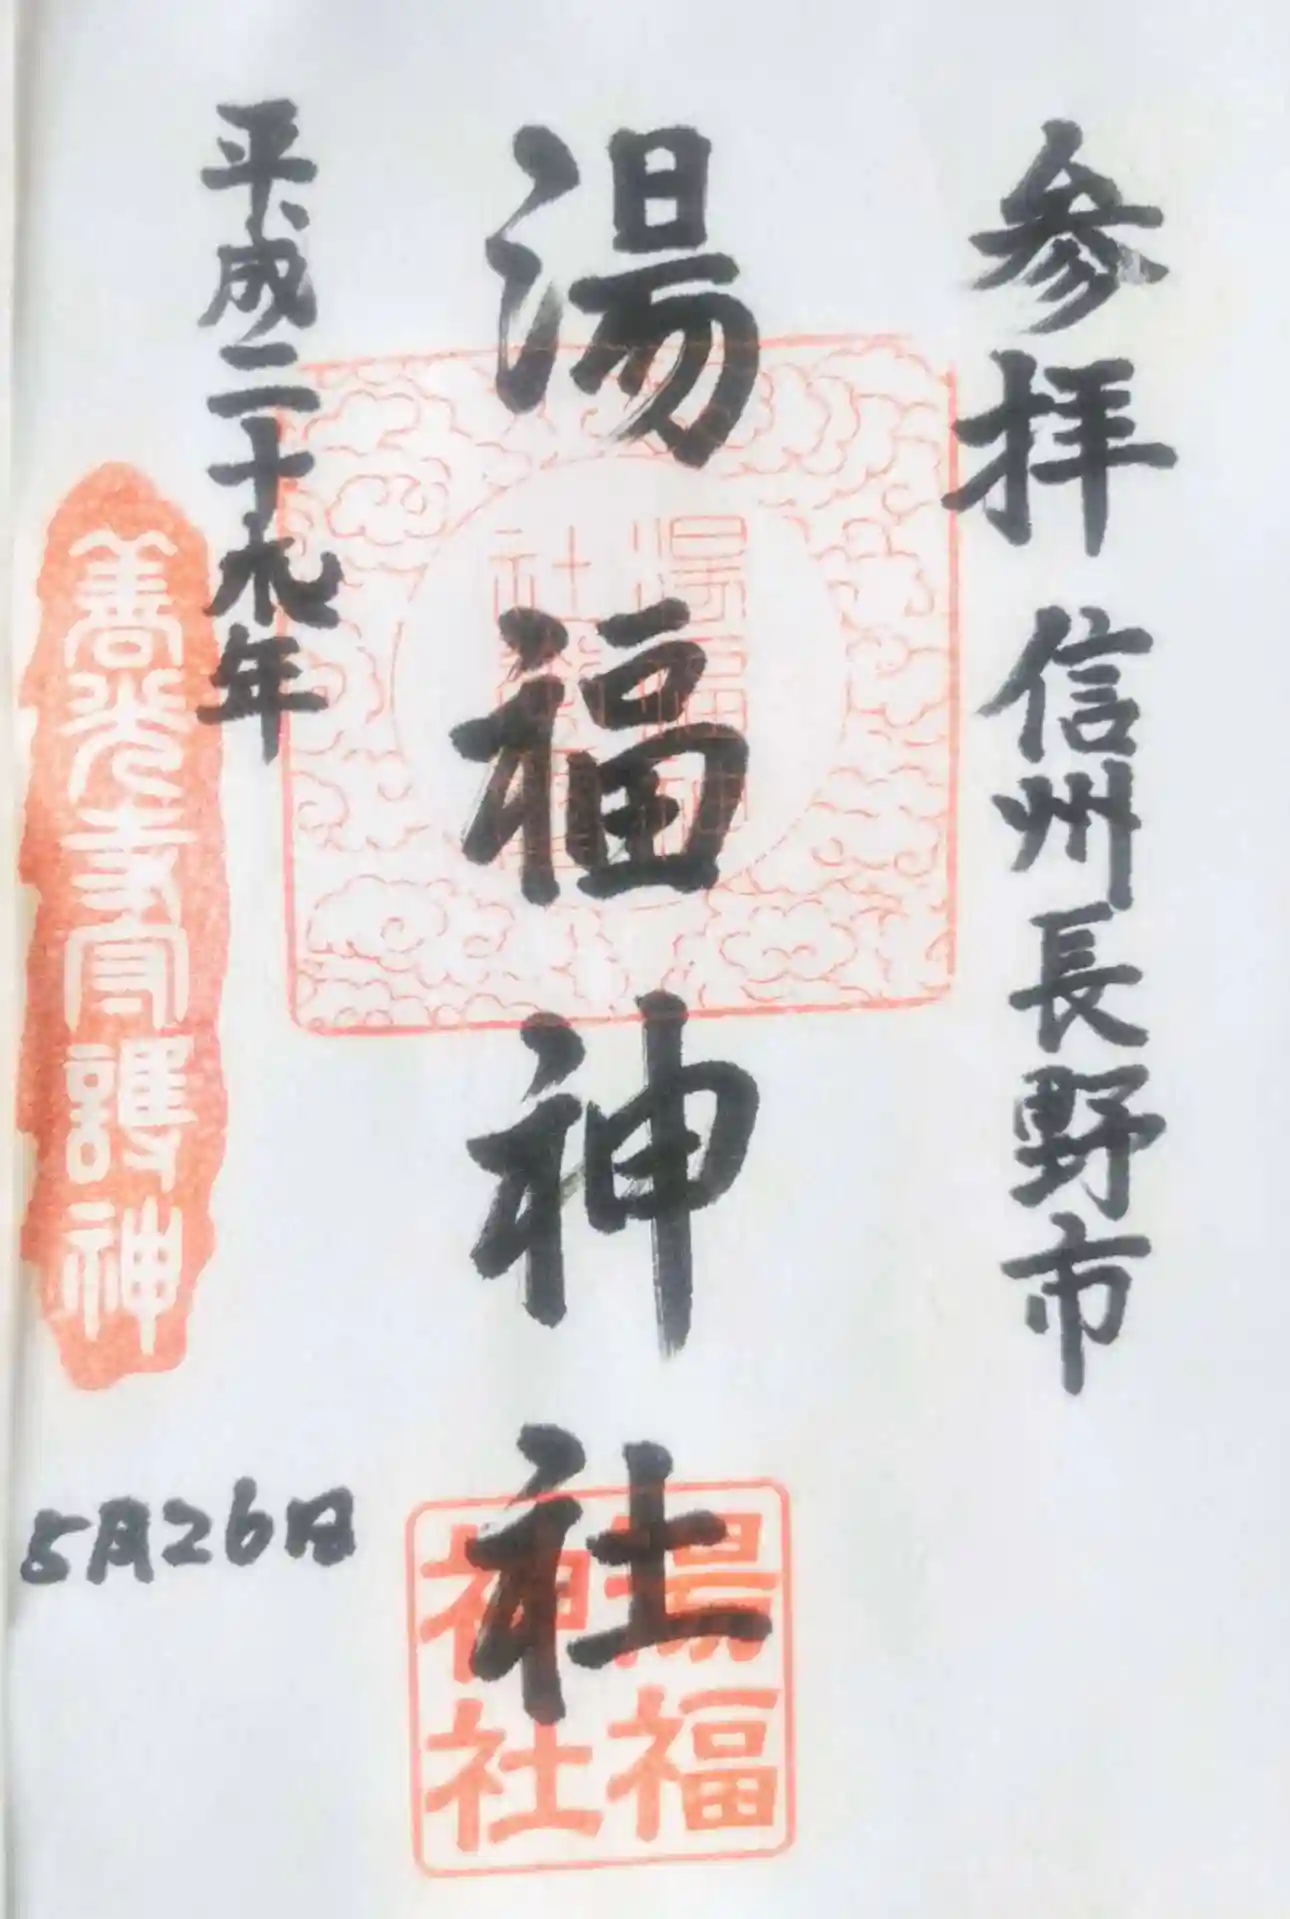 参拝 信州長野市
湯福神社
平成二十九年
善光寺守護神
5月26日
湯福
神社